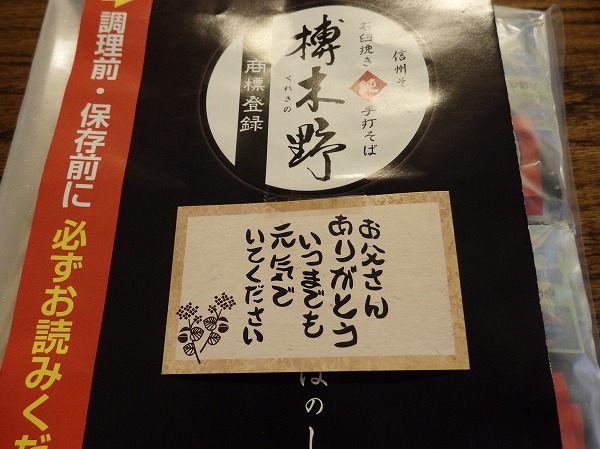 調理前・保存前に
必ずお読みくだ
信州そ
石臼挽き 純 手打そば
榑木野
くれきの
商標登録
お父さん
ありがとう
いつまでも
元気で
いてください
はのし